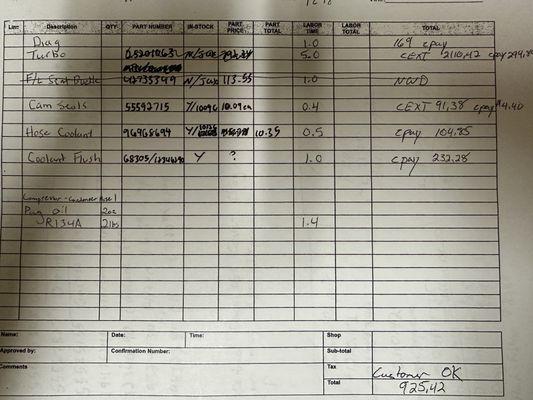 Line Description QTY PART NUMBER IN-STOCK PART PRICE PART TOTAL LABOR TIME LABOR TOTAL TOTAL
Diag 1.0 169 cpay
Turbo 5.0 CEXT 2110,42 cpay
F/L Seat Buckle 42735349 113.55 1.0 NWD
Cam Seals 55592715 10.09 0.4 CEXT 91,38 cpay
Hose Coolant 96968694 10.39 0.5 cpay 104.85
Coolant Flush Y ? 1.0 cpay 232.28
Compressor - Condenser Hose 1
Pag oil 2oz
R134A 2lbs 1.4
Name: Date: Time: Shop
Approved by: Confirmation Number: Sub-total
Comments Tax Customer OK
Total 925,42